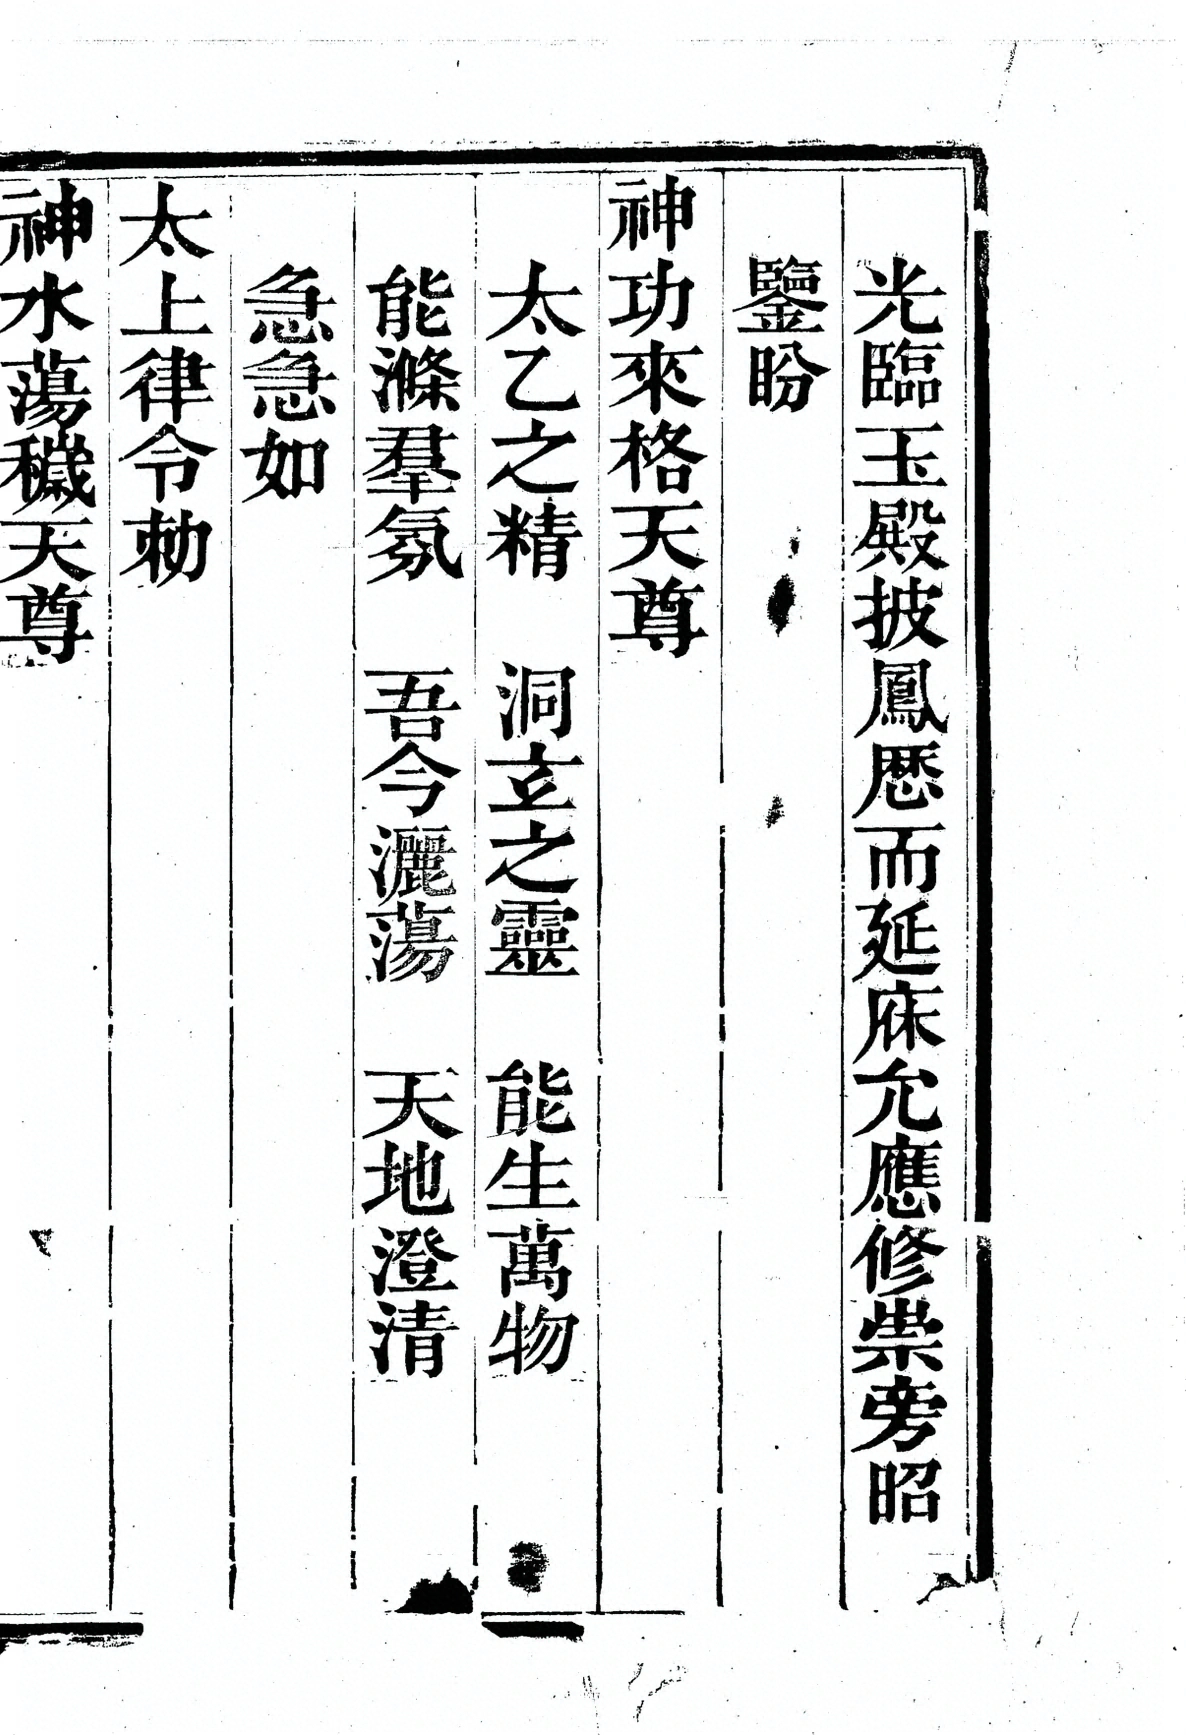 光臨玉殿披鳳厯而延庥允應修崇旁昭
鑒盼
神功來格天尊
太乙之精　洞玄之靈　能生萬物
能滌羣氛　吾今灑蕩　天地澄清
急急如
太上律令勅
神水蕩穢天尊